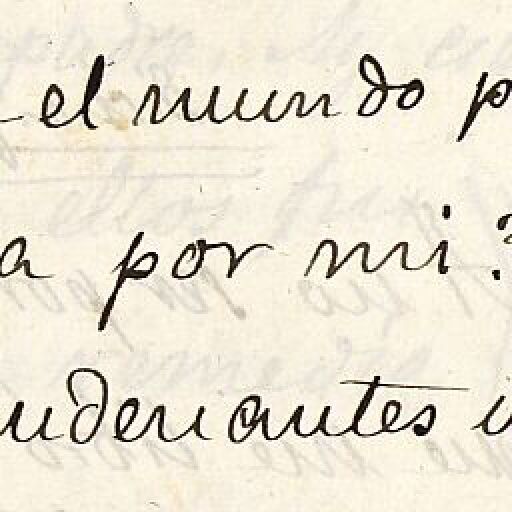 el mundo p
a por mi?
udenantes i